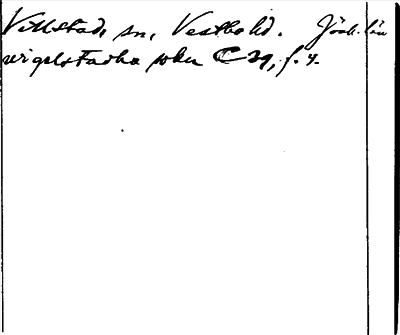 Villstad, sn, Vestbo hd. Jönk. län
wigelstadha sokn C 29, f. 4.